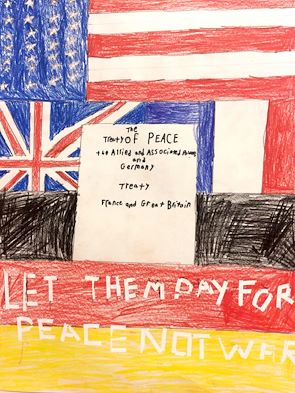 The
Treaty OF PEACE
the Allied and Associated Powers
and
Germany
Treaty
France and Great Britain
LET THEM DAY FOR
PEACE NOT WAR